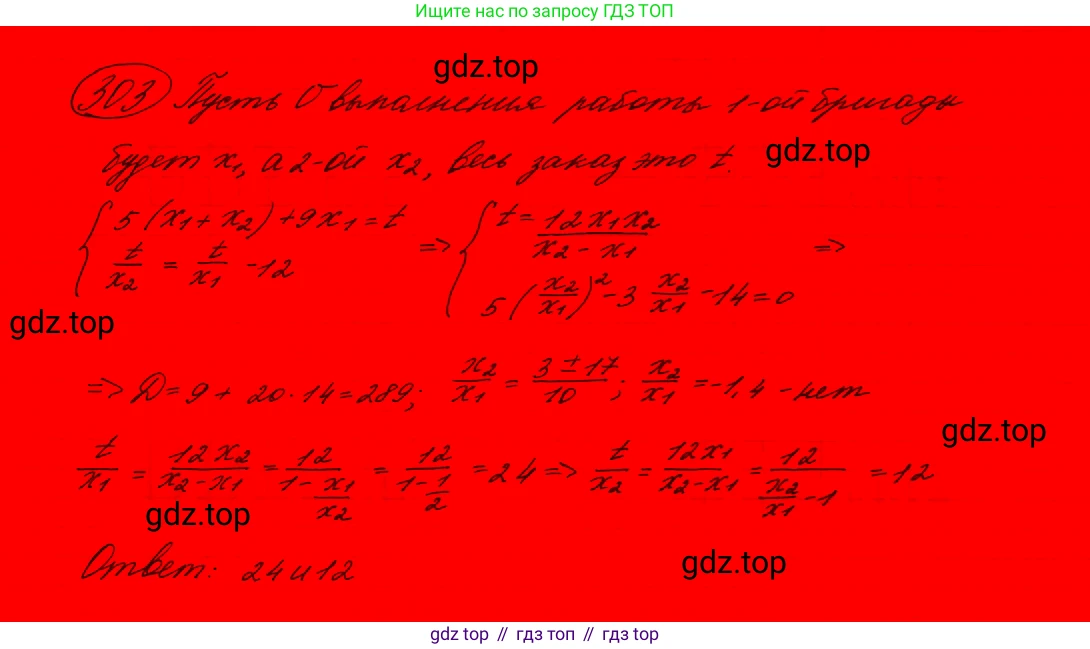 Ищите нас по запросу ГДЗ ТОП
gdz.top
303 Пусть υ выполнения работы 1-ой бригады
будет x₁, а 2-ой x₂, весь заказ это t.
gdz.top
{ 5(x₁ + x₂) + 9x₁ = t => { t = 12x₁x₂ / (x₂ - x₁) =>
t/x₂ = t/x₁ - 12 5(x₂/x₁)² - 3 x₂/x₁ - 14 = 0
gdz.top
=> D = 9 + 20·14 = 289; x₂/x₁ = (3 ± 17)/10; x₂/x₁ = -1,4 - нет
gdz.top
t/x₁ = 12x₂/(x₂ - x₁) = 12/(1 - x₁/x₂) = 12/(1 - 1/2) = 24 => t/x₂ = 12x₁/(x₂ - x₁) = 12/(x₂/x₁ - 1) = 12
gdz.top
gdz.top
Ответ: 24 и 12
gdz.top // гдз топ // gdz top